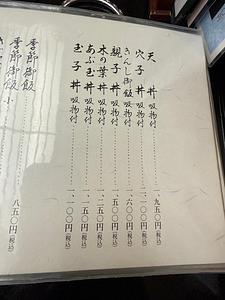 天丼 吸物付 一、九五〇円(税込)
穴子丼 吸物付 二、一〇〇円(税込)
きんし御飯 吸物付 一、六〇〇円(税込)
親子丼 吸物付 一、五〇〇円(税込)
木の葉丼 吸物付 一、二五〇円(税込)
あぶ玉丼 吸物付 一、一五〇円(税込)
玉子丼 吸物付 一、一〇〇円(税込)
季節御飯
季節御飯 小 八五〇円(税込)